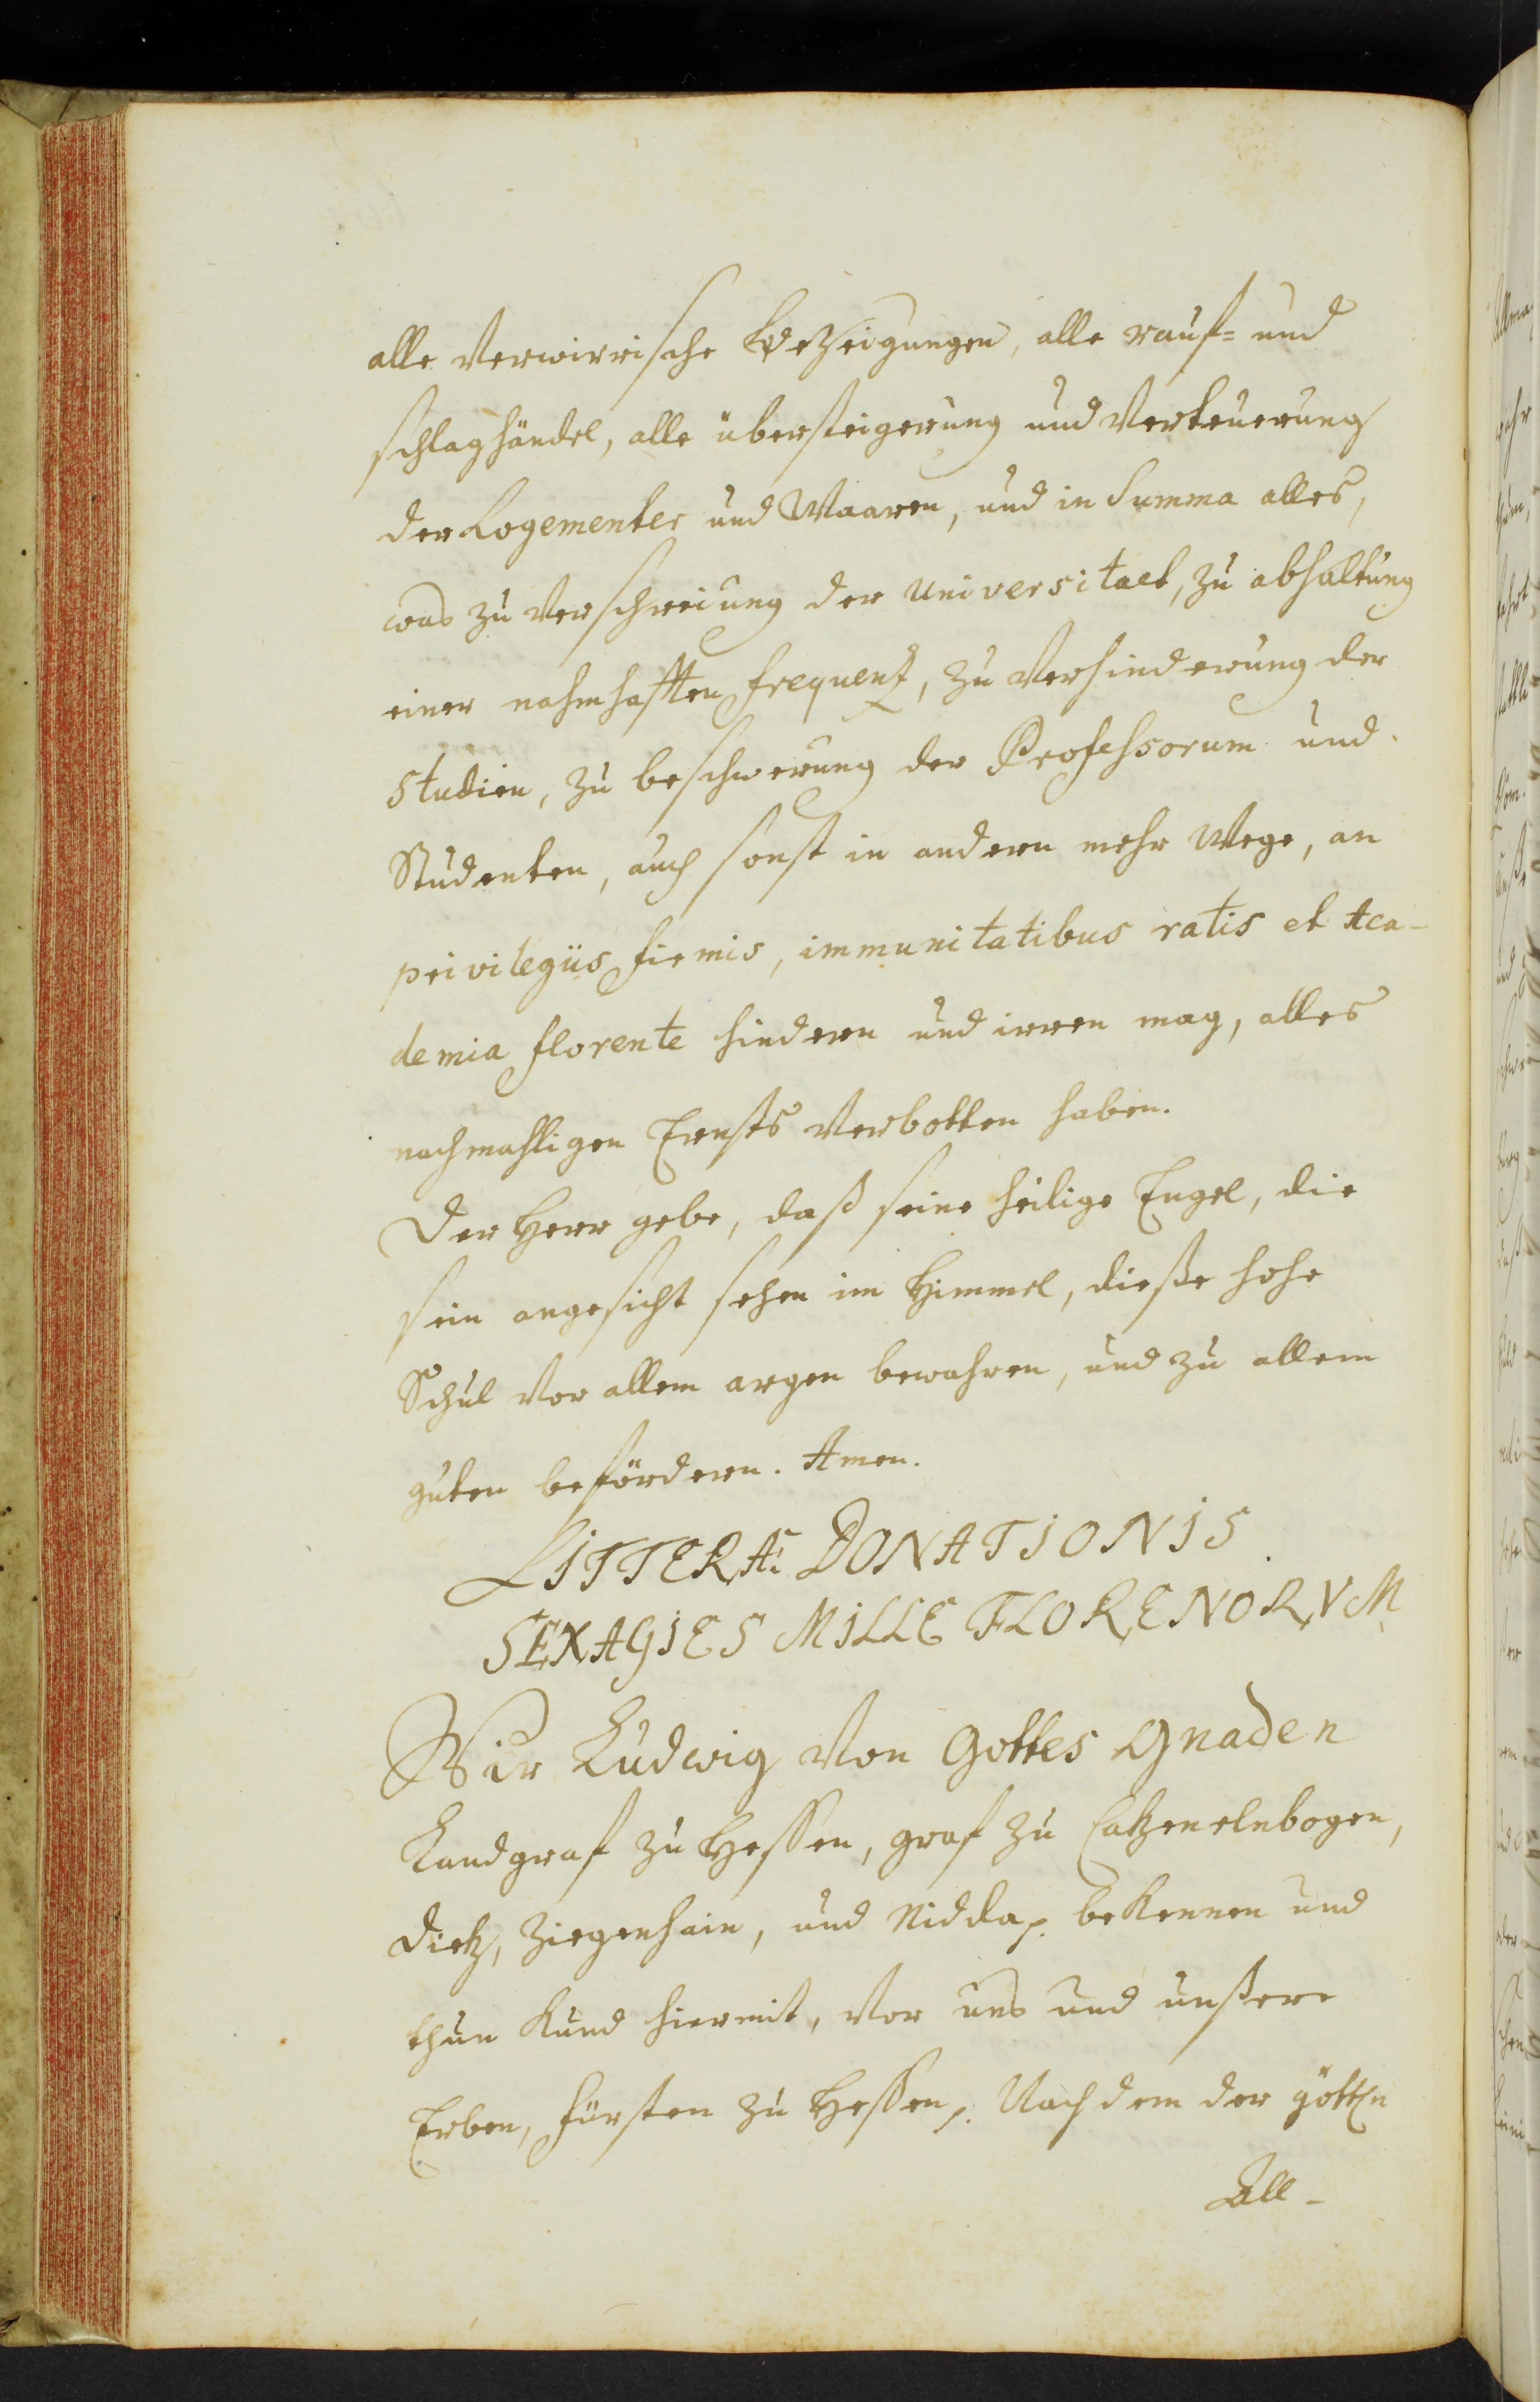 alle Verwirrische Bezeigungen, alle rauf= und
schlaghändel, alle übersteigerung und Verteuerung
der Logementer und Waaren, und in Summa alles,
was zu Verschreiung der Universitaet, zu abhaltung
einer nahmhafften frequenz, zu Verhinderung der
Studien, zu beschwerung der Professorum und
Studenten, auch sonst in andern mehr Wege, an
privilegiis firmis, immunitatibus ratis et Aca-
demia florente hindern und irren mag, alles
nachmahligen Ernsts Verbotten haben.
Der Herr gebe, daß seine heilige Engel, die
sein angesicht sehen im Himmel, dieße hohe
Schul vor allem argen bewahren, und zu allem
guten befördern. Amen.
LITTERÆ DONATIONIS
SEXAGIES MILLE FLORENORVM
Wir Ludwig Von Gottes Gnaden
Landgraf zu Hessen, graf zu Catzenelnbogen,
Dietz, Ziegenhain, und Nidda p. bekennen und
thun Kund hiermit, Vor uns und unßere
Erben, Fürsten zu Hessen p. Nachdem der
All-